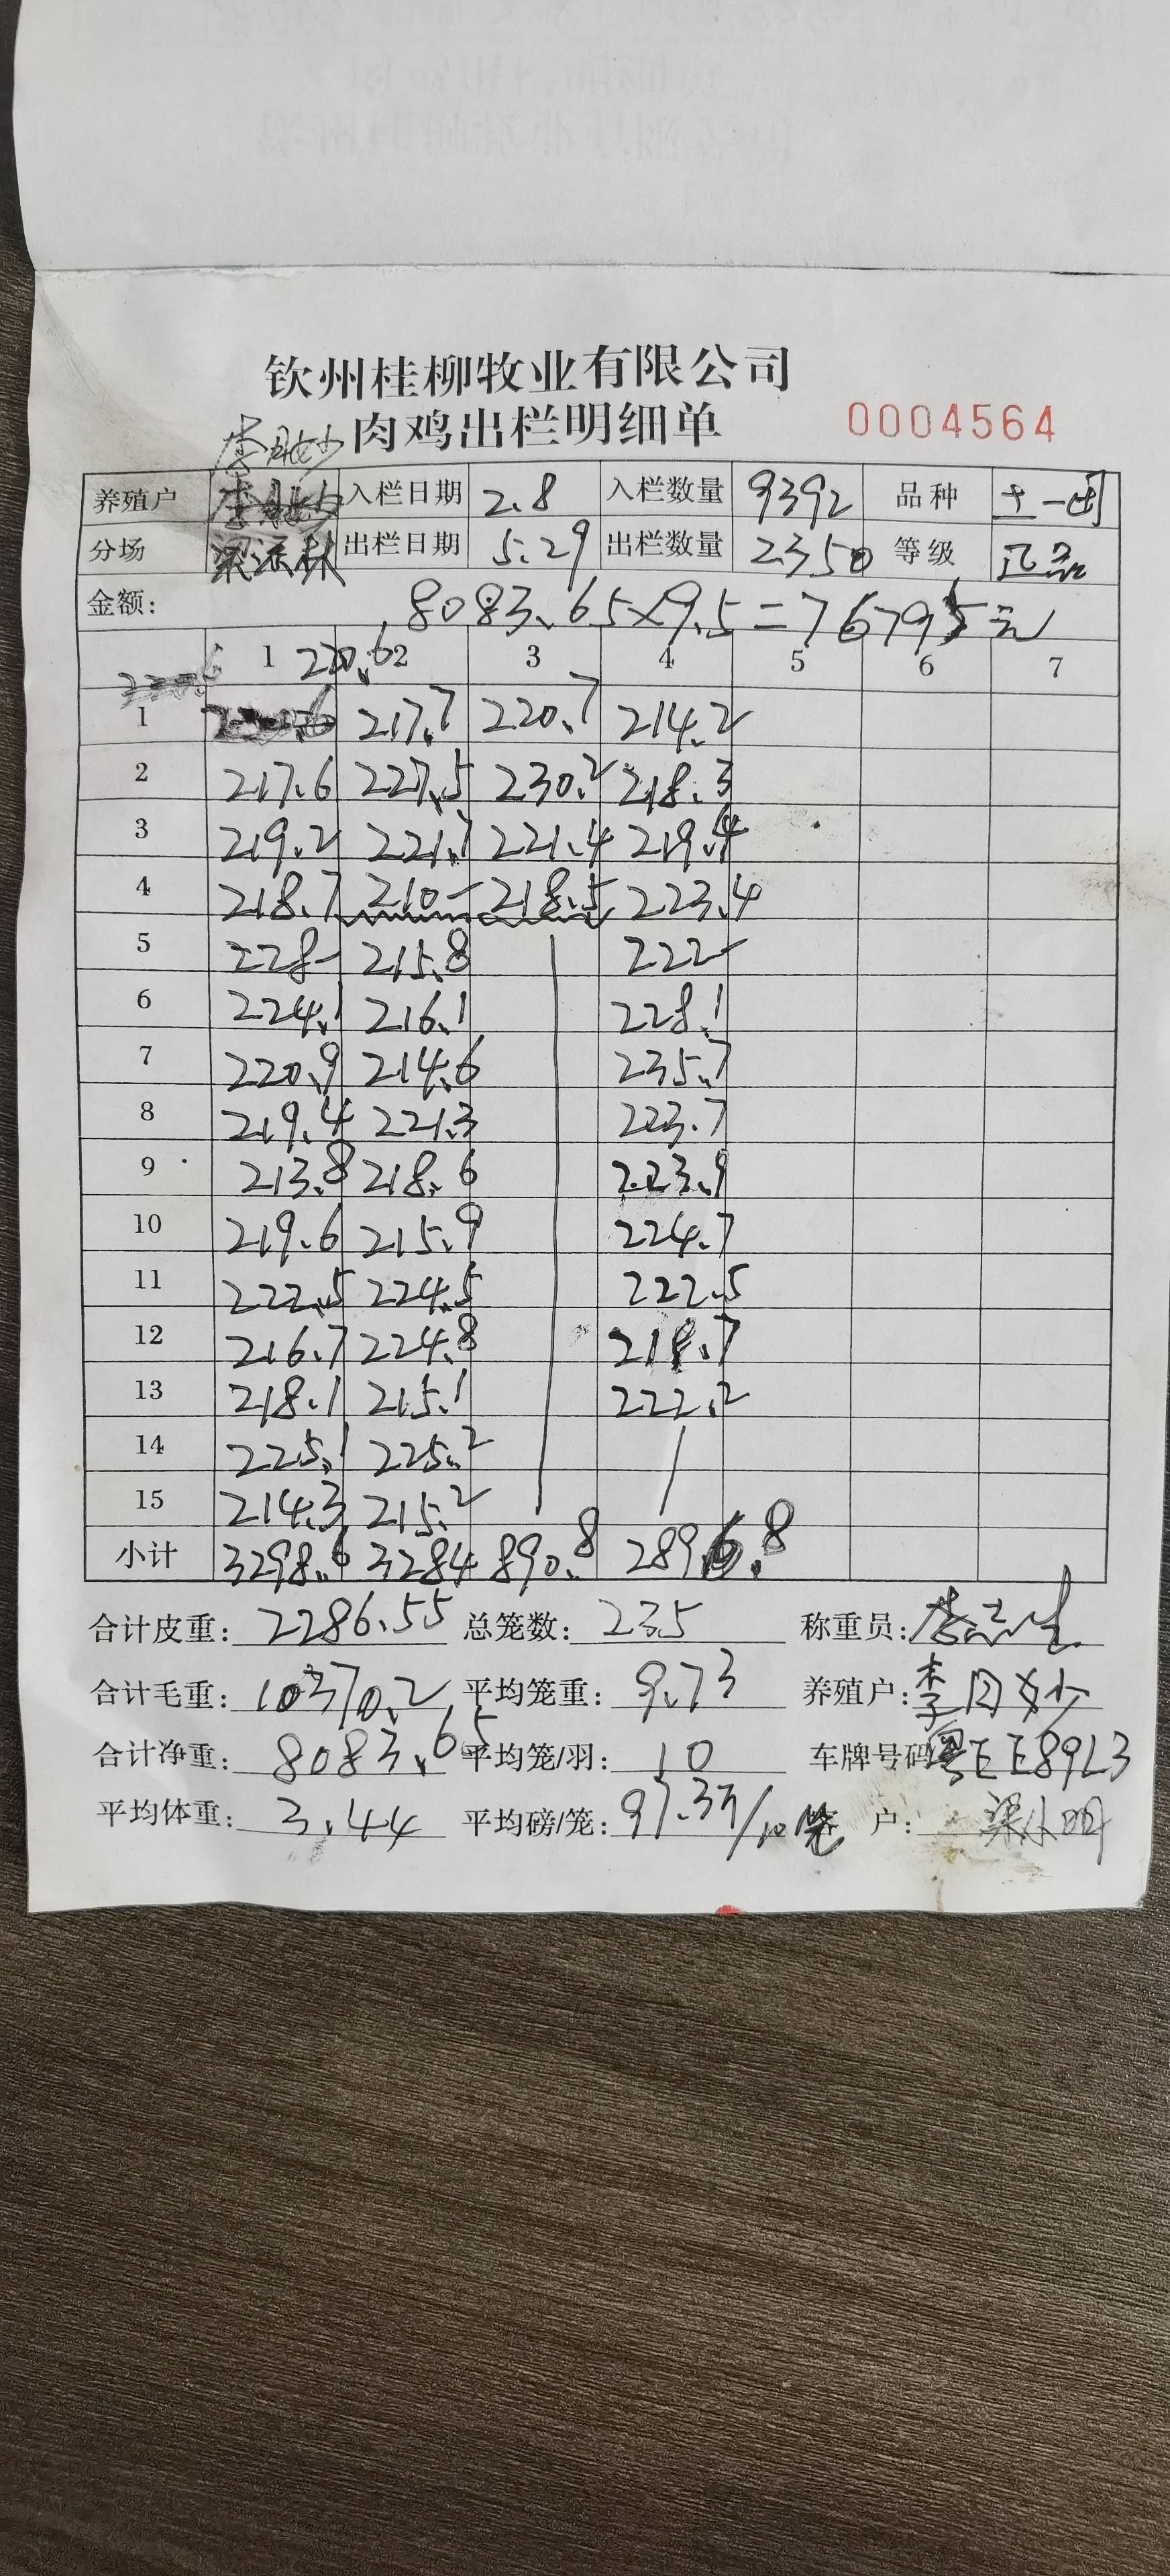 钦州桂柳牧业有限公司
肉鸡出栏明细单 0004564
养殖户 入栏日期 2.8 入栏数量 9392 品种 土一
分场 出栏日期 5.29 出栏数量 2350 等级 正品
金额: 8083.65×9.5=76795元
1 2 3 4 5 6 7
220.6
1 217.7 220.7 214.2
2 217.6 227.5 230.2 218.3
3 219.2 221.1 221.4 219.4
4 218.7 210- 218.5 223.4
5 228- 215.8 222-
6 224.1 216.1 228.1
7 220.9 214.6 235.7
8 219.4 221.3 223.7
9 213.8 218.6 223.9
10 219.6 215.9 224.7
11 222.5 224.5 222.5
12 216.7 224.8 218.7
13 218.1 215.1 222.2
14 225.1 225.2
15 214.3 215.2
小计 3298.6 3284 890.8 2896.8
合计皮重: 2286.55 总笼数: 235 称重员:
合计毛重: 10370.2 平均笼重: 9.73 养殖户: 李月妙
合计净重: 8083.65 平均笼/羽: 10 车牌号码 粤EE89L3
平均体重: 3.44 平均磅/笼: 97.3斤/10笼 户: 梁小明